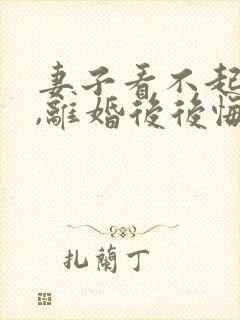 妻子看不起
,離婚後後悔
扎蘭丁